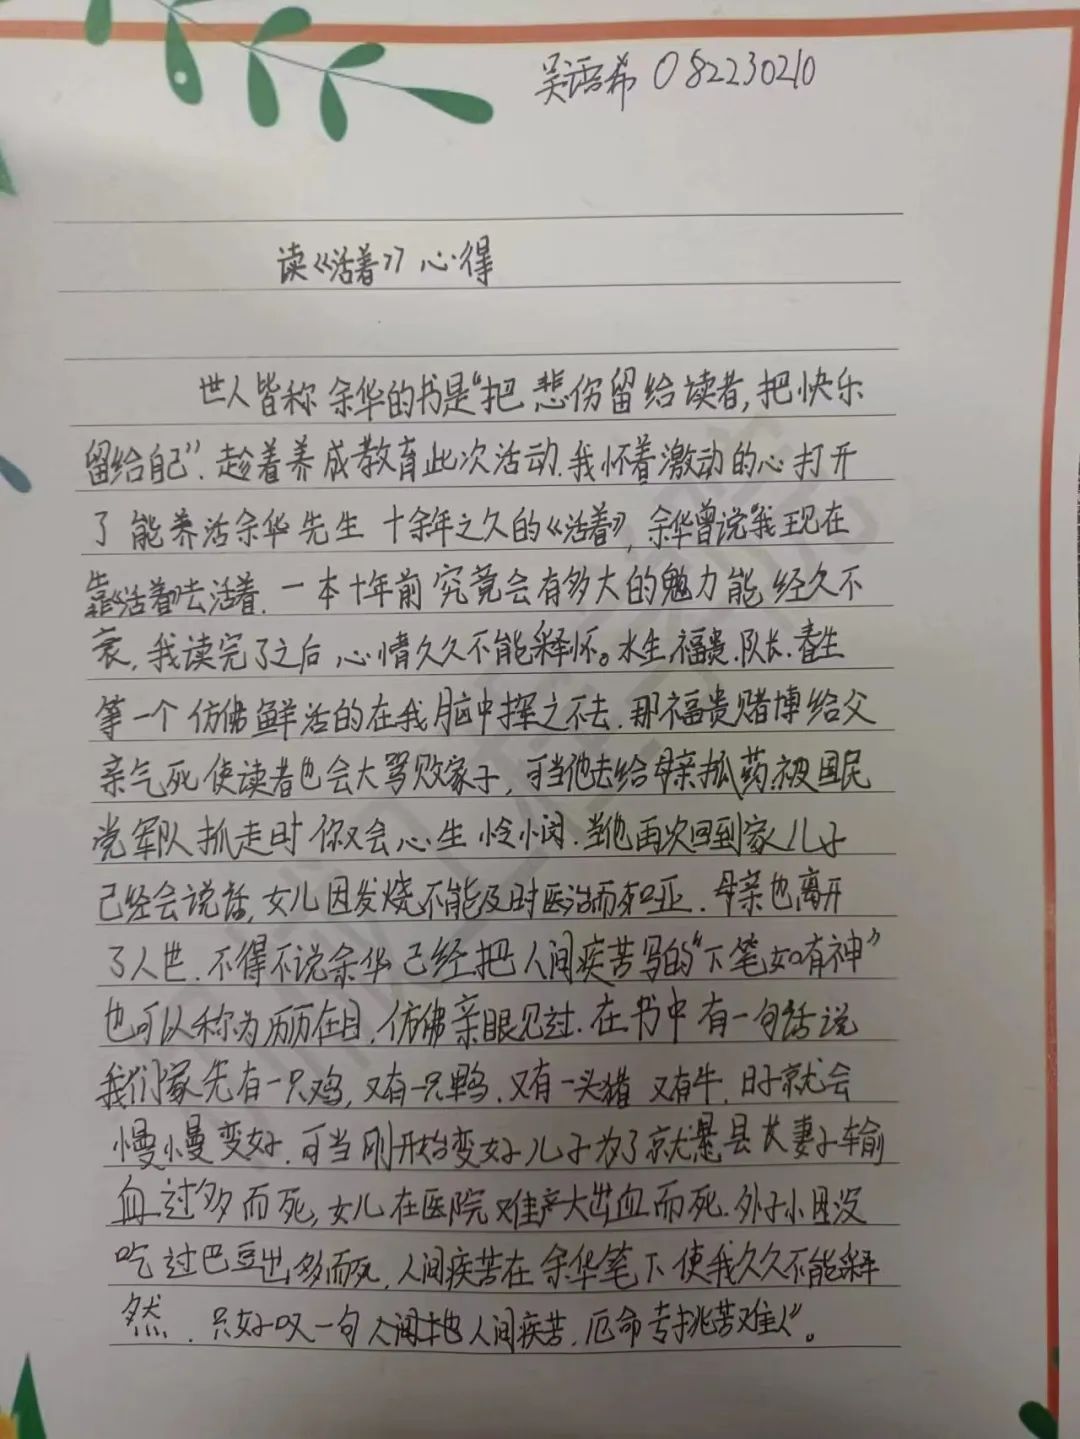 吴语希 082230210
读《活着》心得
世人皆称余华的书是“把悲伤留给读者,把快乐
留给自己”.趁着养成教育此次活动.我怀着激动的心打开
了能养活余华先生十余年之久的《活着》,余华曾说“我现在
靠《活着》去活着.一本十年前究竟会有多大的魅力能经久不
衰,我读完了之后,心情久久不能释怀。水生.福贵.队长.春生
等一个仿佛鲜活的在我脑中挥之不去.那福贵赌博给父
亲气死使读者也会大骂败家子,可当他去给母亲抓药.被国民
党军队抓走时你又会心生怜悯.当他再次回到家儿子
已经会说话,女儿因发烧不能及时医治而变哑.母亲也离开
了人世.不得不说余华已经把人间疾苦写的“下笔如有神”
也可以称为历历在目,仿佛亲眼见过.在书中有一句话说
我们家先有一只鸡,又有一只鸭.又有一头猪又有牛.日子就会
慢慢变好.可当刚开始变好儿子为了就是县长妻子输
血过多而死,女儿在医院难产大出血而死.外子小
吃过巴豆出多而死,人间疾苦在余华笔下使我久久不能释
然.只好叹一句人间 人间疾苦.厄命专挑苦难人”。